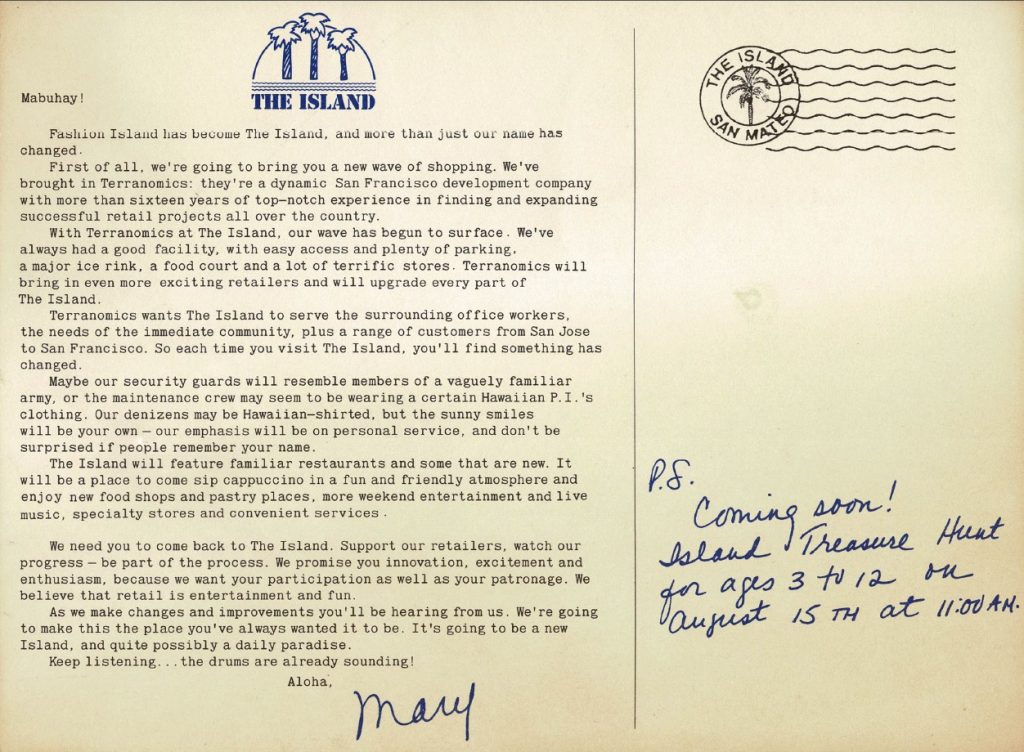 THE ISLAND
Mabuhay!
Fashion Island has become The Island, and more than just our name has
changed.
First of all, we're going to bring you a new wave of shopping. We've
brought in Terranomics: they're a dynamic San Francisco development company
with more than sixteen years of top-notch experience in finding and expanding
successful retail projects all over the country.
With Terranomics at The Island, our wave has begun to surface. We've
always had a good facility, with easy access and plenty of parking,
a major ice rink, a food court and a lot of terrific stores. Terranomics will
bring in even more exciting retailers and will upgrade every part of
The Island.
Terranomics wants The Island to serve the surrounding office workers,
the needs of the immediate community, plus a range of customers from San Jose
to San Francisco. So each time you visit The Island, you'll find something has
changed.
Maybe our security guards will resemble members of a vaguely familiar
army, or the maintenance crew may seem to be wearing a certain Hawaiian P.I.'s
clothing. Our denizens may be Hawaiian-shirted, but the sunny smiles
will be your own — our emphasis will be on personal service, and don't be
surprised if people remember your name.
The Island will feature familiar restaurants and some that are new. It
will be a place to come sip cappuccino in a fun and friendly atmosphere and
enjoy new food shops and pastry places, more weekend entertainment and live
music, specialty stores and convenient services.
We need you to come back to The Island. Support our retailers, watch our
progress — be part of the process. We promise you innovation, excitement and
enthusiasm, because we want your participation as well as your patronage. We
believe that retail is entertainment and fun.
As we make changes and improvements you'll be hearing from us. We're going
to make this the place you've always wanted it to be. It's going to be a new
Island, and quite possibly a daily paradise.
Keep listening...the drums are already sounding!
Aloha,
Mary
THE ISLAND
SAN MATEO
P.S.
Coming soon!
Island Treasure Hunt
for ages 3 to 12 on
August 15TH at 11:00 AM.